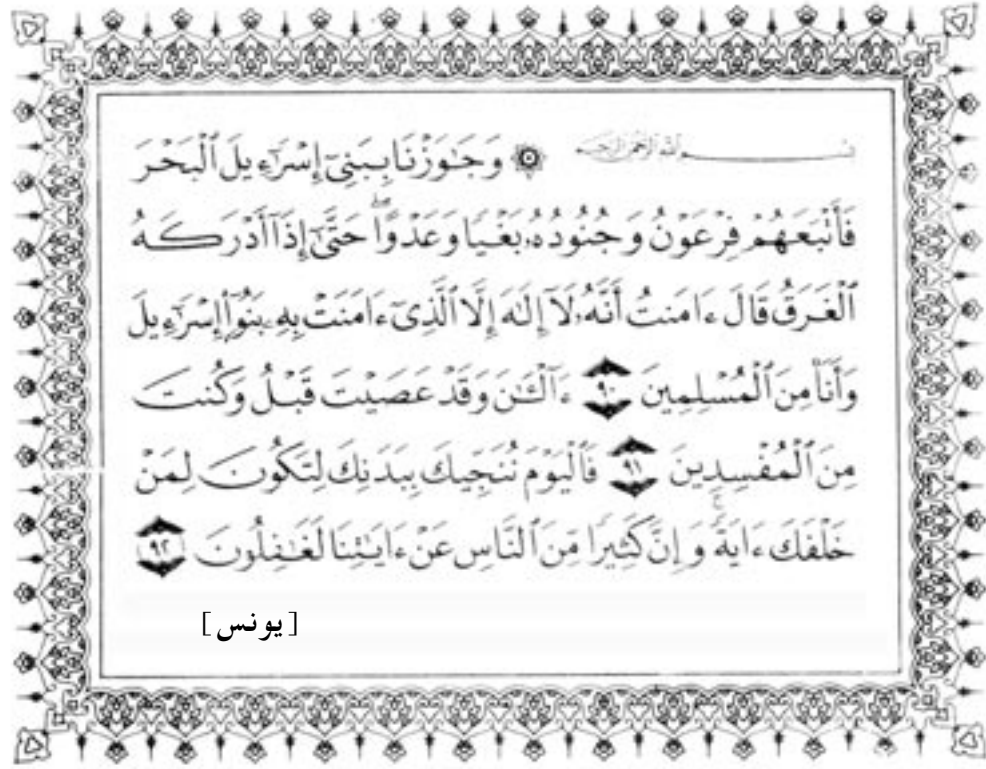 بِسْمِ ٱللَّهِ ٱلرَّحْمَٰنِ ٱلرَّحِيمِ ۞ وَجَٰوَزْنَا بِبَنِىٓ إِسْرَٰٓءِيلَ ٱلْبَحْرَ
فَأَتْبَعَهُمْ فِرْعَوْنُ وَجُنُودُهُۥ بَغْيًا وَعَدْوًا ۖ حَتَّىٰٓ إِذَآ أَدْرَكَهُ
ٱلْغَرَقُ قَالَ ءَامَنتُ أَنَّهُۥ لَآ إِلَٰهَ إِلَّا ٱلَّذِىٓ ءَامَنَتْ بِهِۦ بَنُوٓا۟ إِسْرَٰٓءِيلَ
وَأَنَا۠ مِنَ ٱلْمُسْلِمِينَ ٩٠ ءَآلْـَٰٔنَ وَقَدْ عَصَيْتَ قَبْلُ وَكُنتَ
مِنَ ٱلْمُفْسِدِينَ ٩١ فَٱلْيَوْمَ نُنَجِّيكَ بِبَدَنِكَ لِتَكُونَ لِمَنْ
خَلْفَكَ ءَايَةً ۚ وَإِنَّ كَثِيرًا مِّنَ ٱلنَّاسِ عَنْ ءَايَٰتِنَا لَغَٰفِلُونَ ٩٢
[يونس]